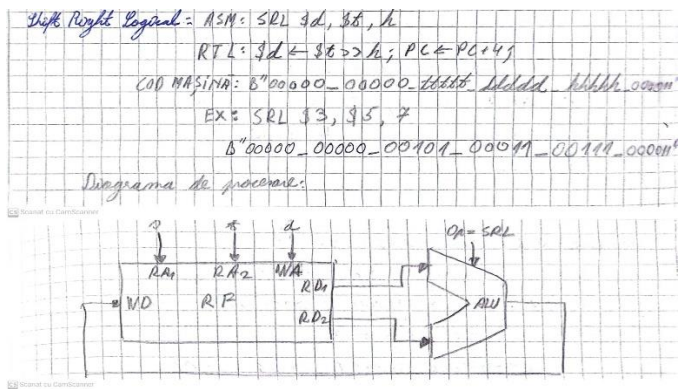 Shift Right Logical: ASM: SRL $d, $t, h
RTL: $d ← $t >> h; PC ← PC+4;
COD MAȘINA: B"00000_00000_ttttt_ddddd_hhhhh_000011"
EX: SRL $3, $5, 7
B"00000_00000_00101_00011_00111_000011"
Diagrama de procesare:
CS Scanat cu CamScanner
s t d Op = SRL
RA1 RA2 WA
RD1
WD RF ALU
RD2
CS Scanat cu CamScanner